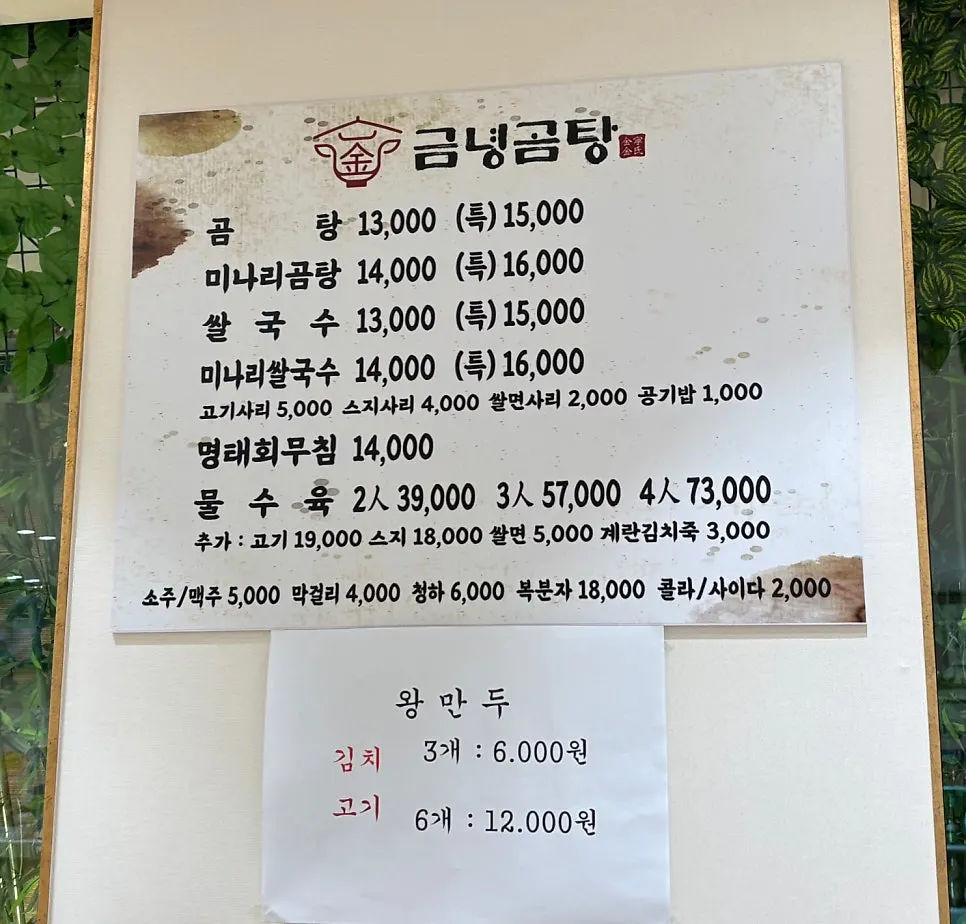 金 금녕곰탕 金寧金氏
곰 탕 13,000 (특) 15,000
미나리곰탕 14,000 (특) 16,000
쌀 국 수 13,000 (특) 15,000
미나리쌀국수 14,000 (특) 16,000
고기사리 5,000 스지사리 4,000 쌀면사리 2,000 공기밥 1,000
명태회무침 14,000
물 수 육 2人 39,000 3人 57,000 4人 73,000
추가 : 고기 19,000 스지 18,000 쌀면 5,000 계란김치죽 3,000
소주/맥주 5,000 막걸리 4,000 청하 6,000 복분자 18,000 콜라/사이다 2,000
왕 만 두
김치 3개 : 6.000원
고기 6개 : 12.000원